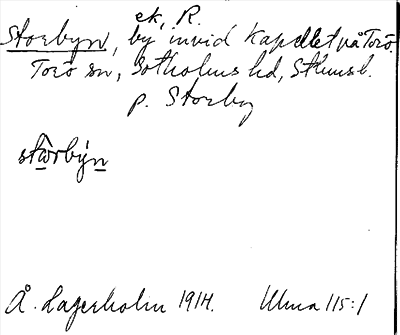 ek, R.
Storbyn, by invid kapellet på Torö.
Torö sn, Sotholms hd, Sthms l.
p. Storby
stωrbýn
Å. Lagerholm 1914. Ulma 115:1